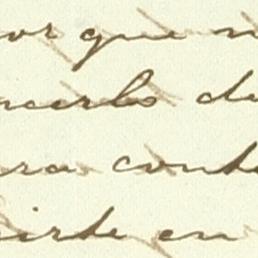 or que n
ncerlo de
ra conte
irte en